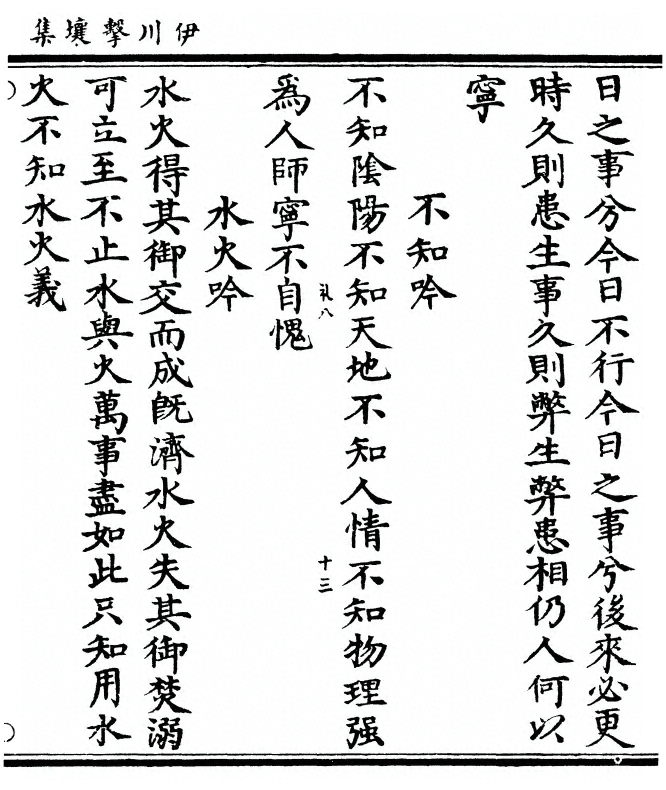 伊川擊壤集
日之事兮今日不行今日之事兮後來必更
時久則患生事久則弊生弊患相仍人何以
寧
不知吟
不知陰陽不知天地不知人情不知物理强
礼八
十三
為人師寧不自愧
水火吟
水火得其御交而成旣濟水火失其御焚溺
可立至不止水與火萬事盡如此只知用水
火不知水火義